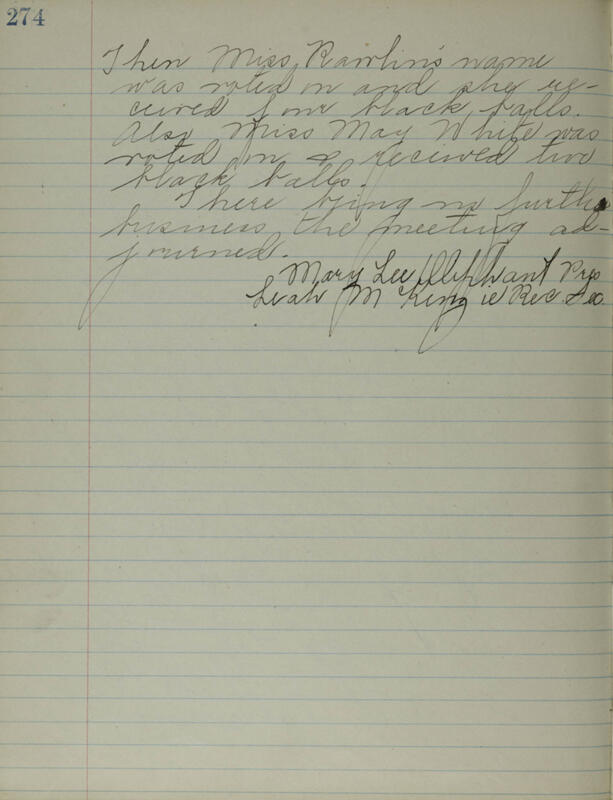 274
Then Miss Rawlin's name
was voted on and she re-
ceived four black balls.
Also Miss May White was
voted on & received two
black balls.
There being no further
business the meeting ad-
journed.
Mary Lee Oliphant Pres
Leah McKenzie Rec. Sec.